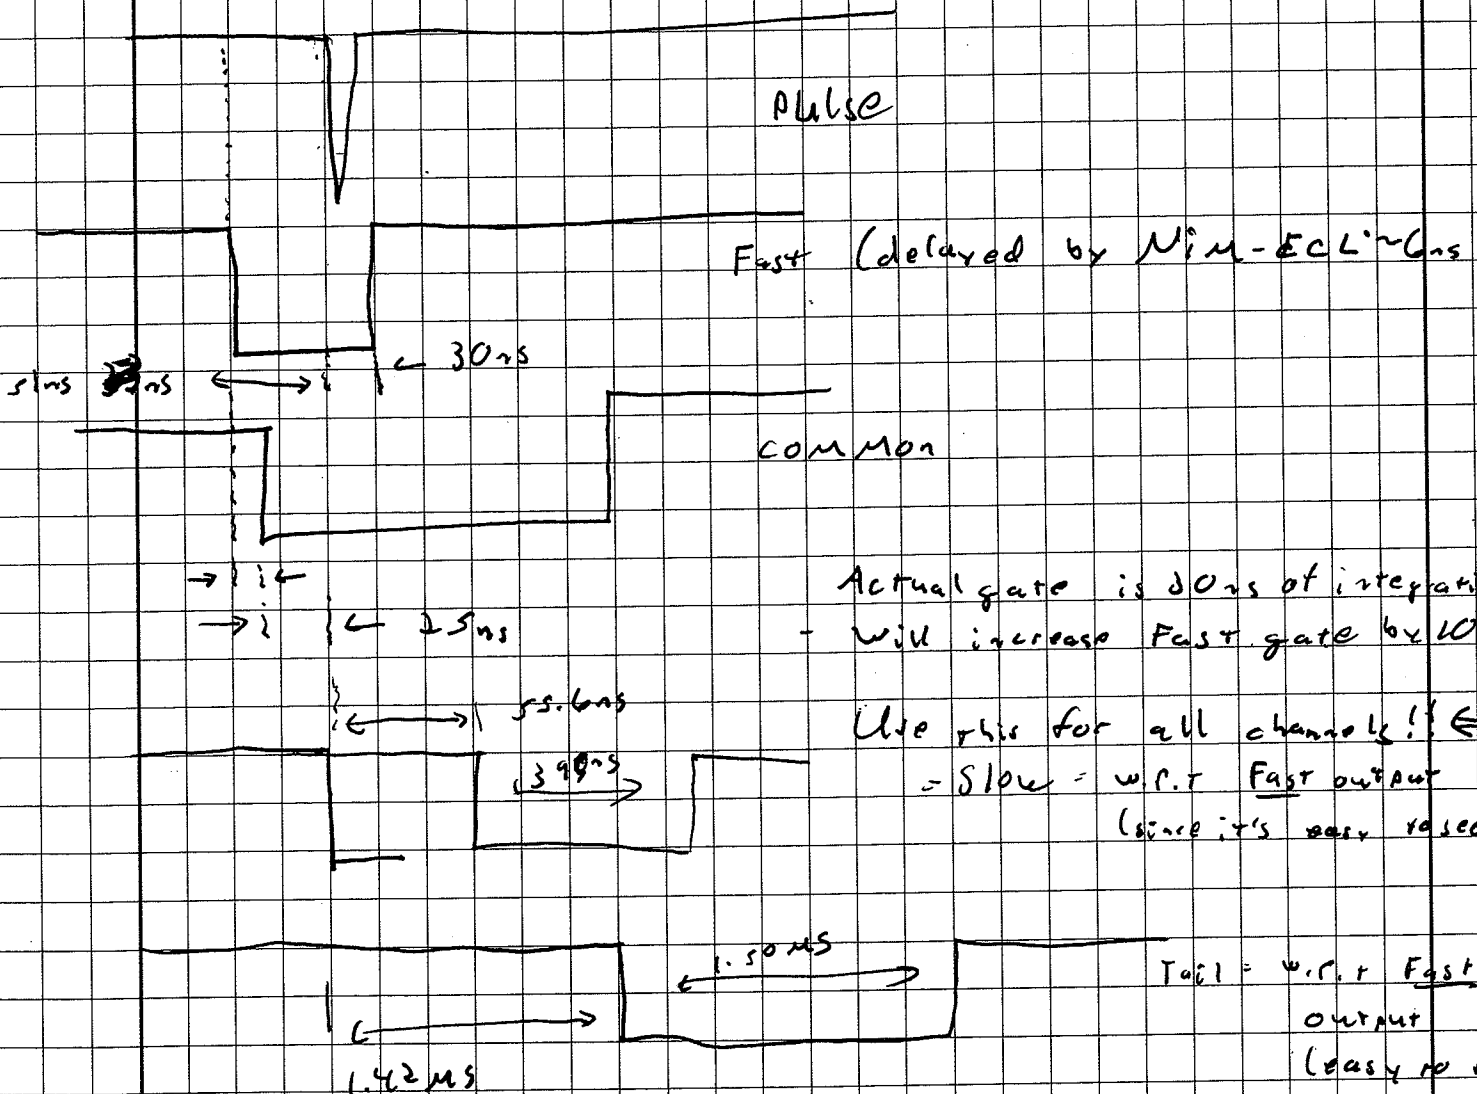 Pulse
Fast (delayed by NIM-ECL ~6ns
30ns
51ns ns
common
Actual gate is ns of integrati
25ns
- Will increase Fast gate by 10
55.6ns
Use this for all channels!! ←
= Slow = w.r.t Fast output
(since it's easy to see
1.50 μs
Tail = w.r.t Fast
output
(easy to
1.42 μs